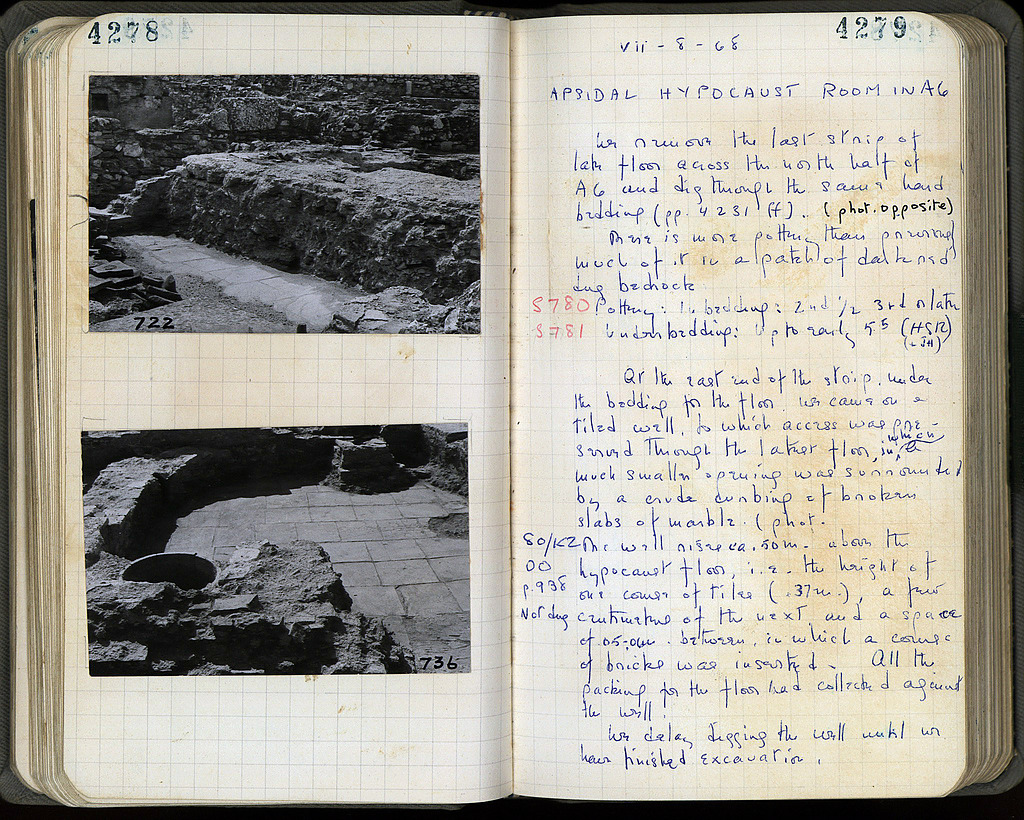 4278
722
736
4279
vii - 8 - 68
APSIDAL HYPOCAUST ROOM IN A6
We remove the last strip of
late floor across the north half of
A6 and dig through the same hard
bedding (pp. 4231 ff). (phot. opposite)
There is more pottery than previously
much of it in a patch of darkened
dug bedrock
S780 Pottery: In bedding: 2nd 1/2 3rd or later
S781 Under bedding: Up to early 5.5 (HSR)
(+ JH)
At the east end of the strip, under
the bedding for the floor we came on a
tiled well, to which access was pre-
served through the latest floor, in which
much smaller opening was surrounded
by a crude curbing of broken
slabs of marble. (phot.
80/KZ The well rises ca. .50m. above the
DO hypocaust floor, i.e. the height of
p.938 one course of tiles (.37m.), a few
Not dug centimetres of the next and a space
of between, in which a course
of bricks was inserted. All the
packing for the floor had collected against
the well.
We delay digging the well until we
have finished excavation.